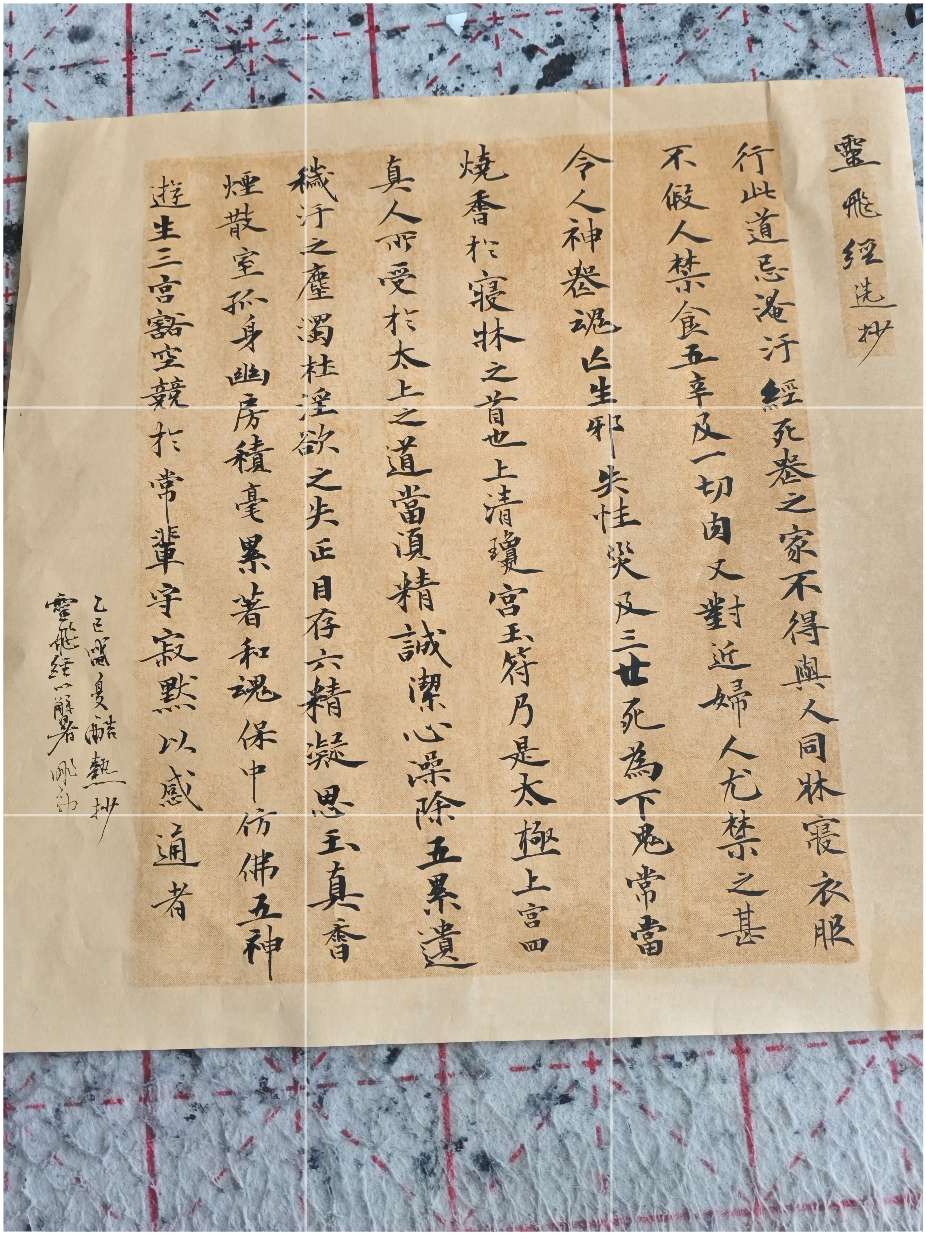 靈飛經选抄
行此道忌淹汙經死喪之家不得與人同牀寢衣服
不假人禁食五辛及一切肉又對近婦人尤禁之甚
令人神喪魂亡生邪失性災及三世死為下鬼常當
燒香於寢牀之首也上清瓊宮玉符乃是太極上宮四
真人所受於太上之道當須精誠潔心澡除五累遺
穢汙之塵濁杜淫欲之失正目存六精凝思玉真香
煙散室孤身幽房積毫累著和魂保中仿佛五神
遊生三宮豁空競於常輩守寂默以感通者
乙巳閏夏酷熱抄
靈飛經以解暑